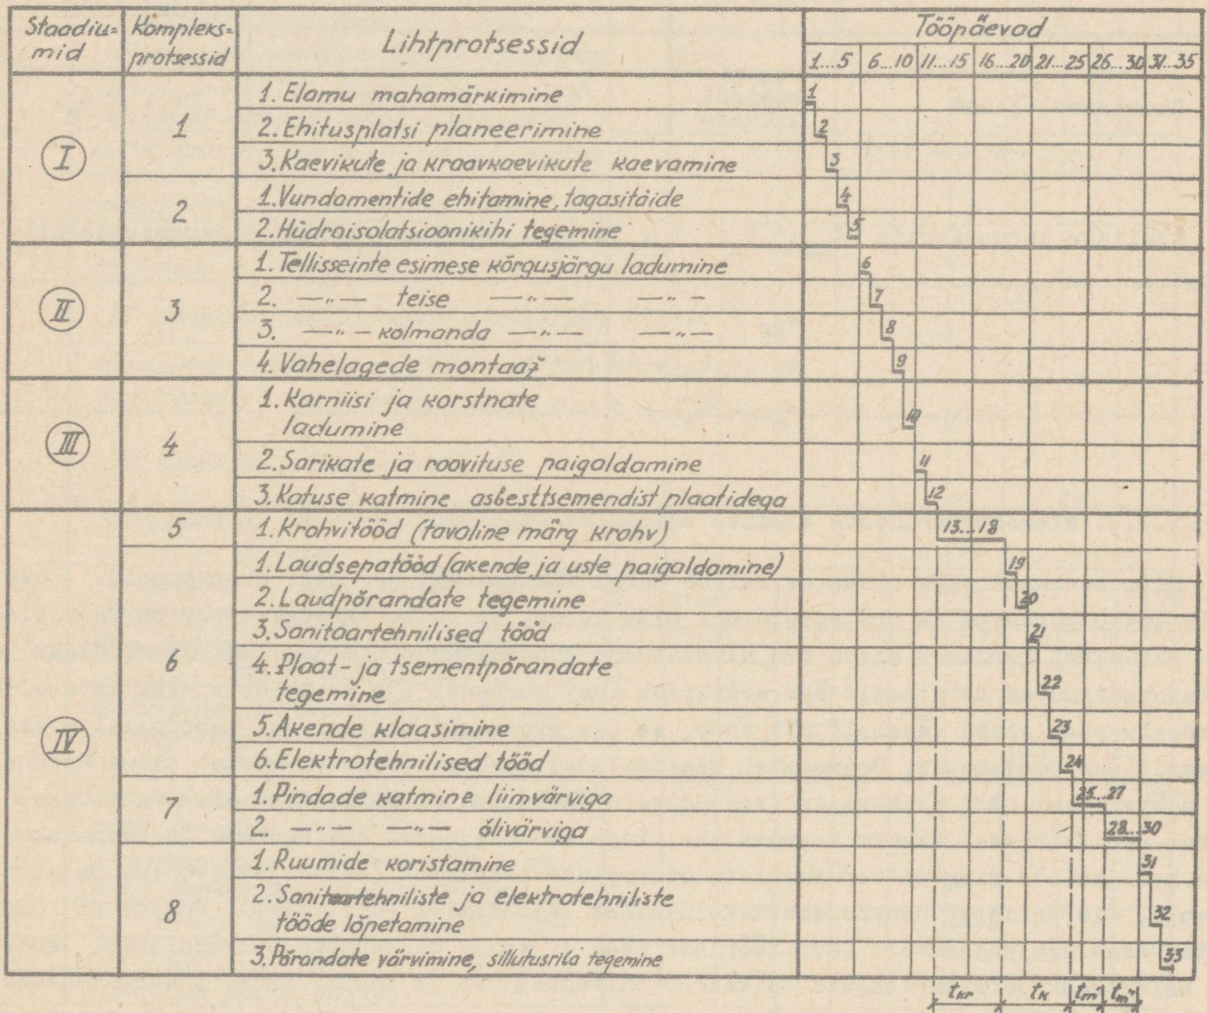 Staadiu-
mid
Kompleks-
protsessid
Lihtprotsessid
Tööpäevad
1...5 6...10 11...15 16...20 21...25 26...30 31...35
I
1
1. Elamu mahamärkimine
1
2. Ehitusplatsi planeerimine
2
3. Kaevikute ja kraavkaevikute kaevamine
3
2
1. Vundamentide ehitamine, tagasitäide
4
2. Hüdroisolatsioonikihi tegemine
5
II
3
1. Tellisseinte esimese kõrgusjärgu ladumine
6
2. —"— teise —"— —"—
7
3. —"— kolmanda —"— —"—
8
4. Vahelagede montaaž
9
III
4
1. Karniisi ja korstnate
ladumine
10
2. Sarikate ja roovituse paigaldamine
11
3. Katuse katmine asbesttsemendist plaatidega
12
IV
5
1. Krohvitööd (tavaline märg krohv)
13...18
6
1. Laudsepatööd (akende ja uste paigaldamine)
19
2. Laudpõrandate tegemine
20
3. Sanitaartehnilised tööd
21
4. Plaat- ja tsementpõrandate
tegemine
22
5. Akende klaasimine
23
6. Elektrotehnilised tööd
24
7
1. Pindade katmine liimvärviga
25...27
2. —"— —"— õlivärviga
28...30
8
1. Ruumide koristamine
31
2. Sanitaartehniliste ja elektrotehniliste
tööde lõpetamine
32
3. Põrandate värvimine, sillutusriba tegemine
33
tkr tk tm' tm"